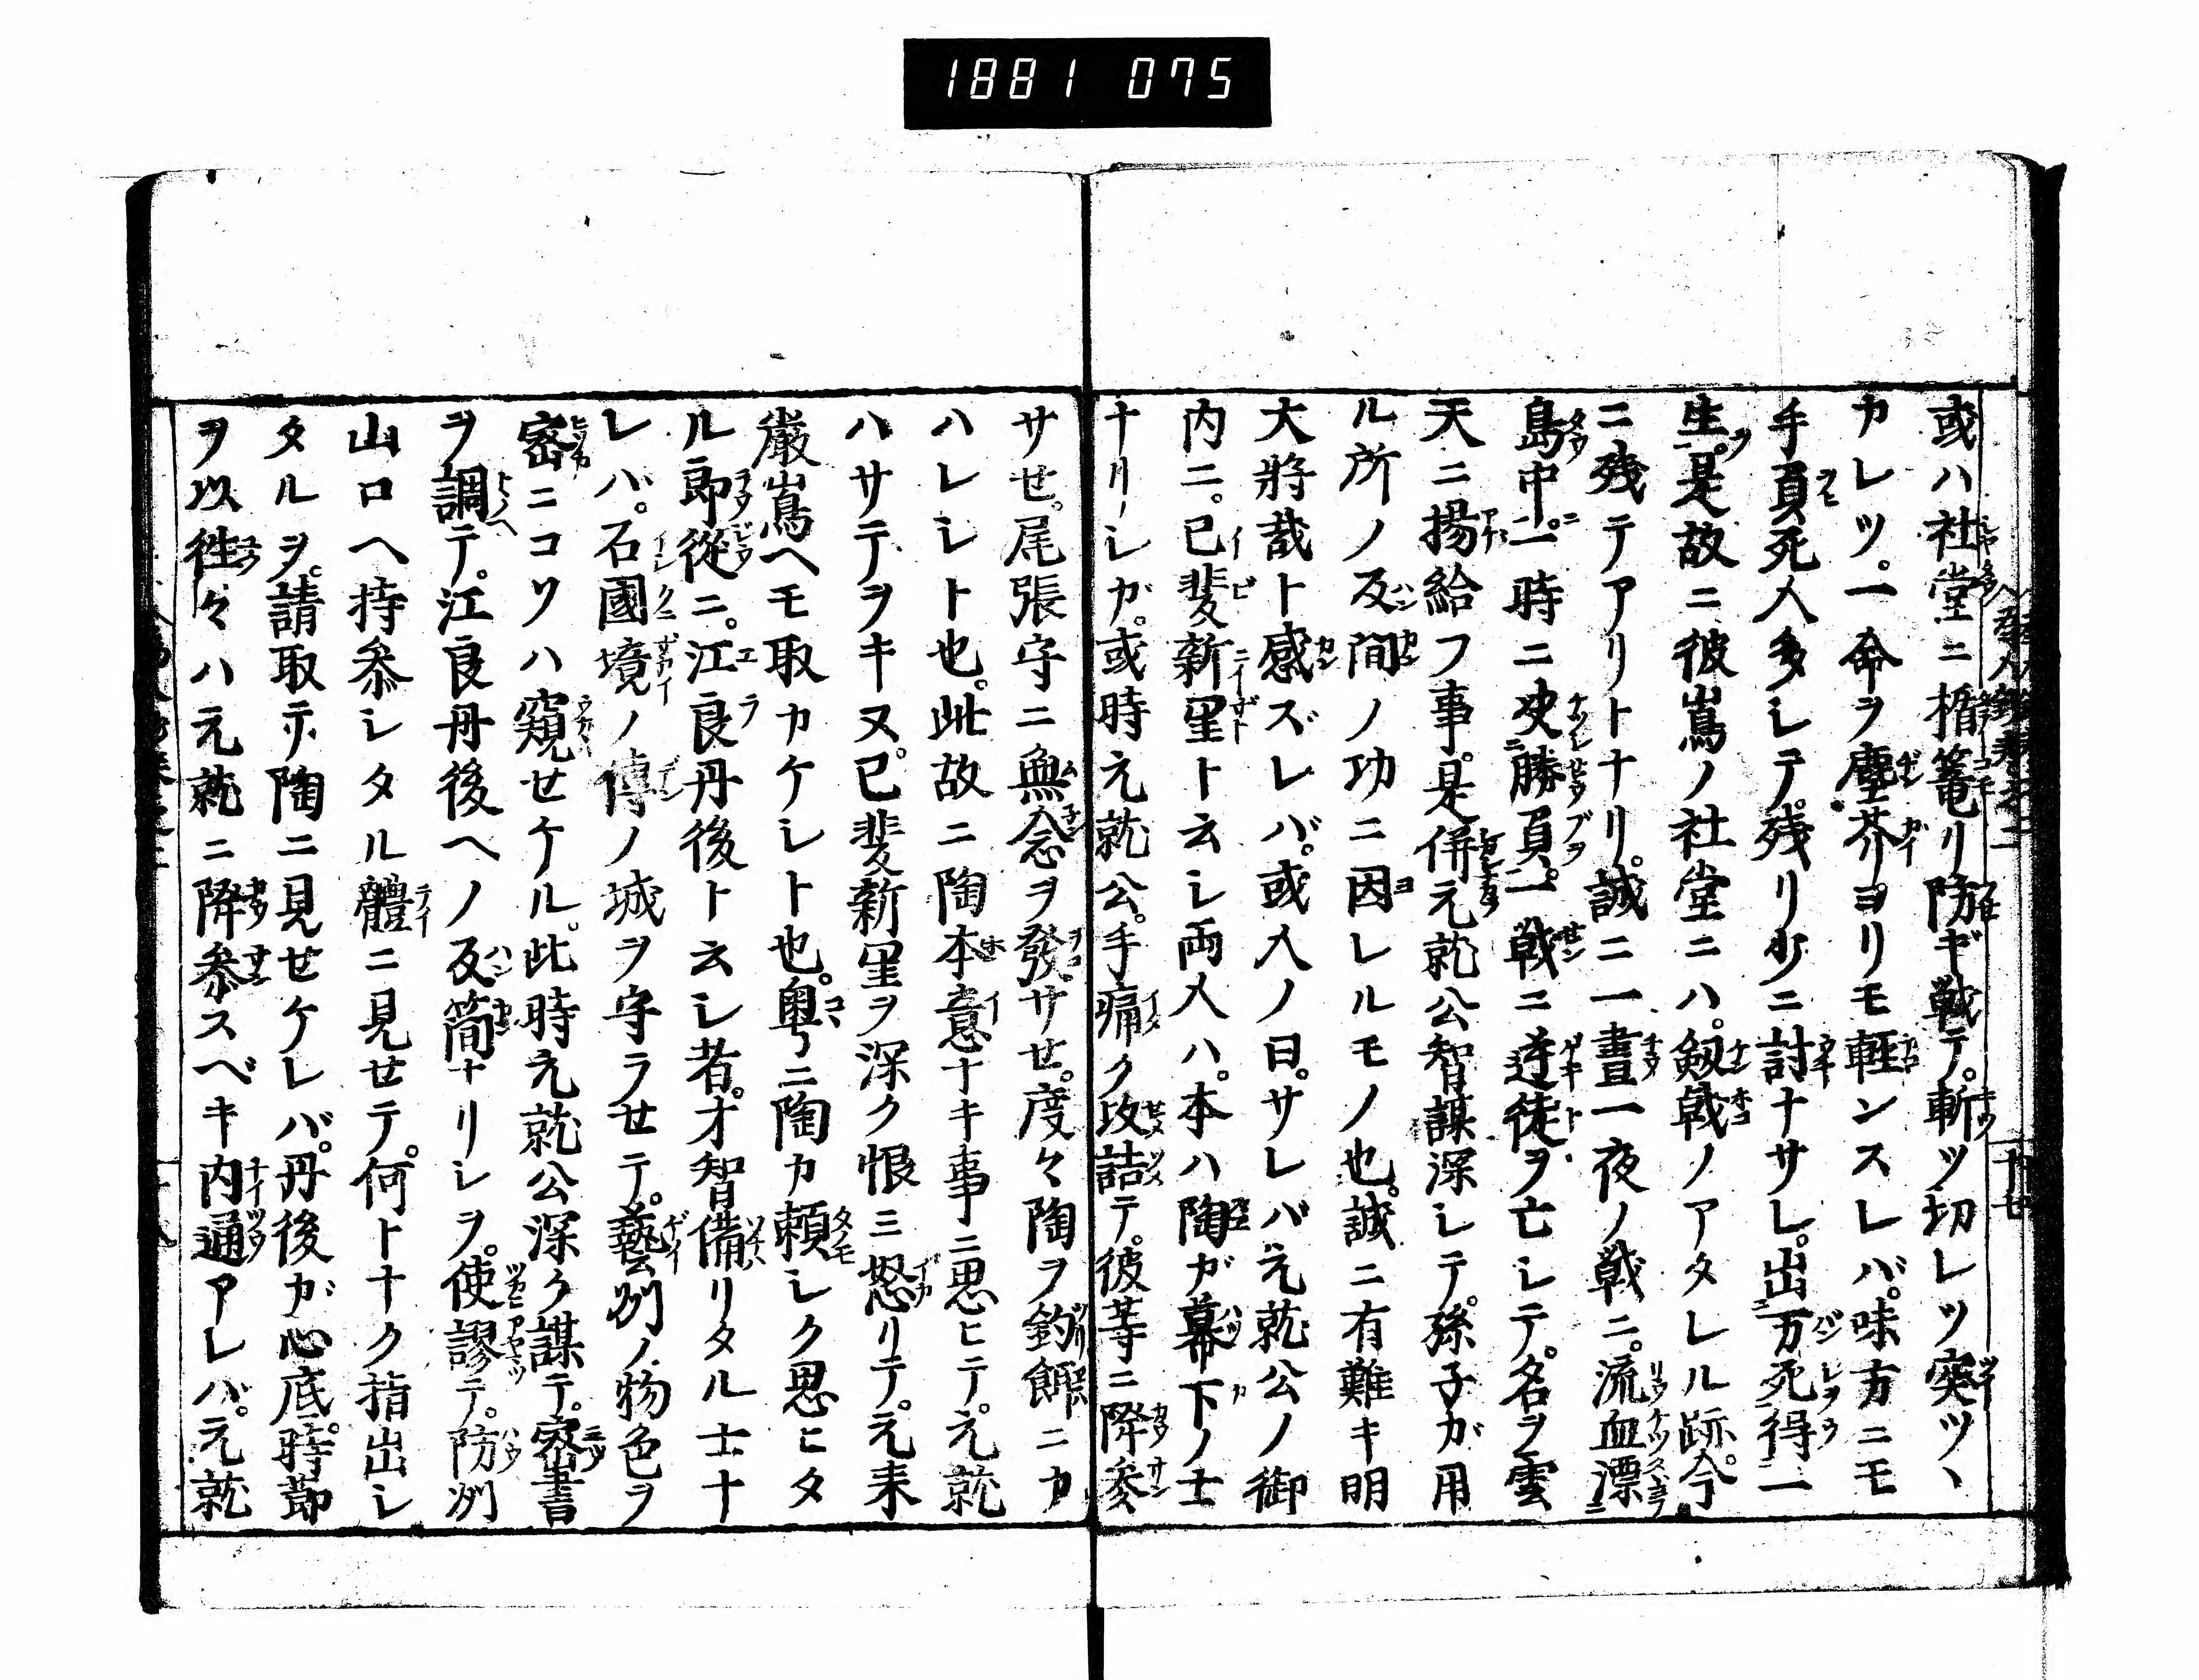 1881 075
或ハ社堂ニ楯篭リ防ギ戦テ。斬ツ切レツ突ツヽ
カレツ。一命ヲ塵芥ヨリモ軽ンスレバ。味方ニモ
手負死人多レテ。残リ少ニ討ナサレ。出万死得一
生。是故ニ彼嶌ノ社堂ニハ。剱戟ノアタレル跡。今
ニ残テアリトナリ。誠ニ一晝一夜ノ戦ニ。流血漂
島中。一時ニ决勝負。一戦ニ逆徒ヲ亡シテ。名ヲ雲
天ニ揚給フ事。是併元就公智謀深シテ。孫子ガ用
ル所ノ反間ノ功ニ因レルモノ也。誠ニ有難キ明
大將哉ト感ズレバ。或人ノ曰。サレバ元就公ノ御
内ニ。已斐新里ト云シ両人ハ。本ハ陶ガ幕下ノ士
ナリシガ。或時元就公。手痛ク攻詰テ。彼等ニ降参
サセ。尾張守ニ無念ヲ發サセ。度々陶ヲ釣餌ニカ
ハレシト也。此故ニ陶本意ナキ事ニ思ヒテ。元就
ハサテヲキヌ。已斐新里ヲ深ク恨ミ怒リテ。元来
厳嶌ヘモ取カケシト也。粤ニ陶カ頼シク思ヒタ
ル郎從ニ。江良丹後ト云シ者。才智備リタル士ナ
レバ。石國境ノ傳ノ城ヲ守ラセテ。藝州ノ物色ヲ
密ニコソハ窺セケル。此時元就公深ク謀テ。密書
ヲ調テ。江良丹後ヘノ反簡ナリシヲ。使謬テ。防州
山口ヘ持参シタル體ニ見せテ。何トナク指出シ
タルヲ。請取テ、陶ニ見せケレバ。丹後ガ心底。時節
ヲ以往々ハ元就ニ降参スベキ内通アレバ。元就